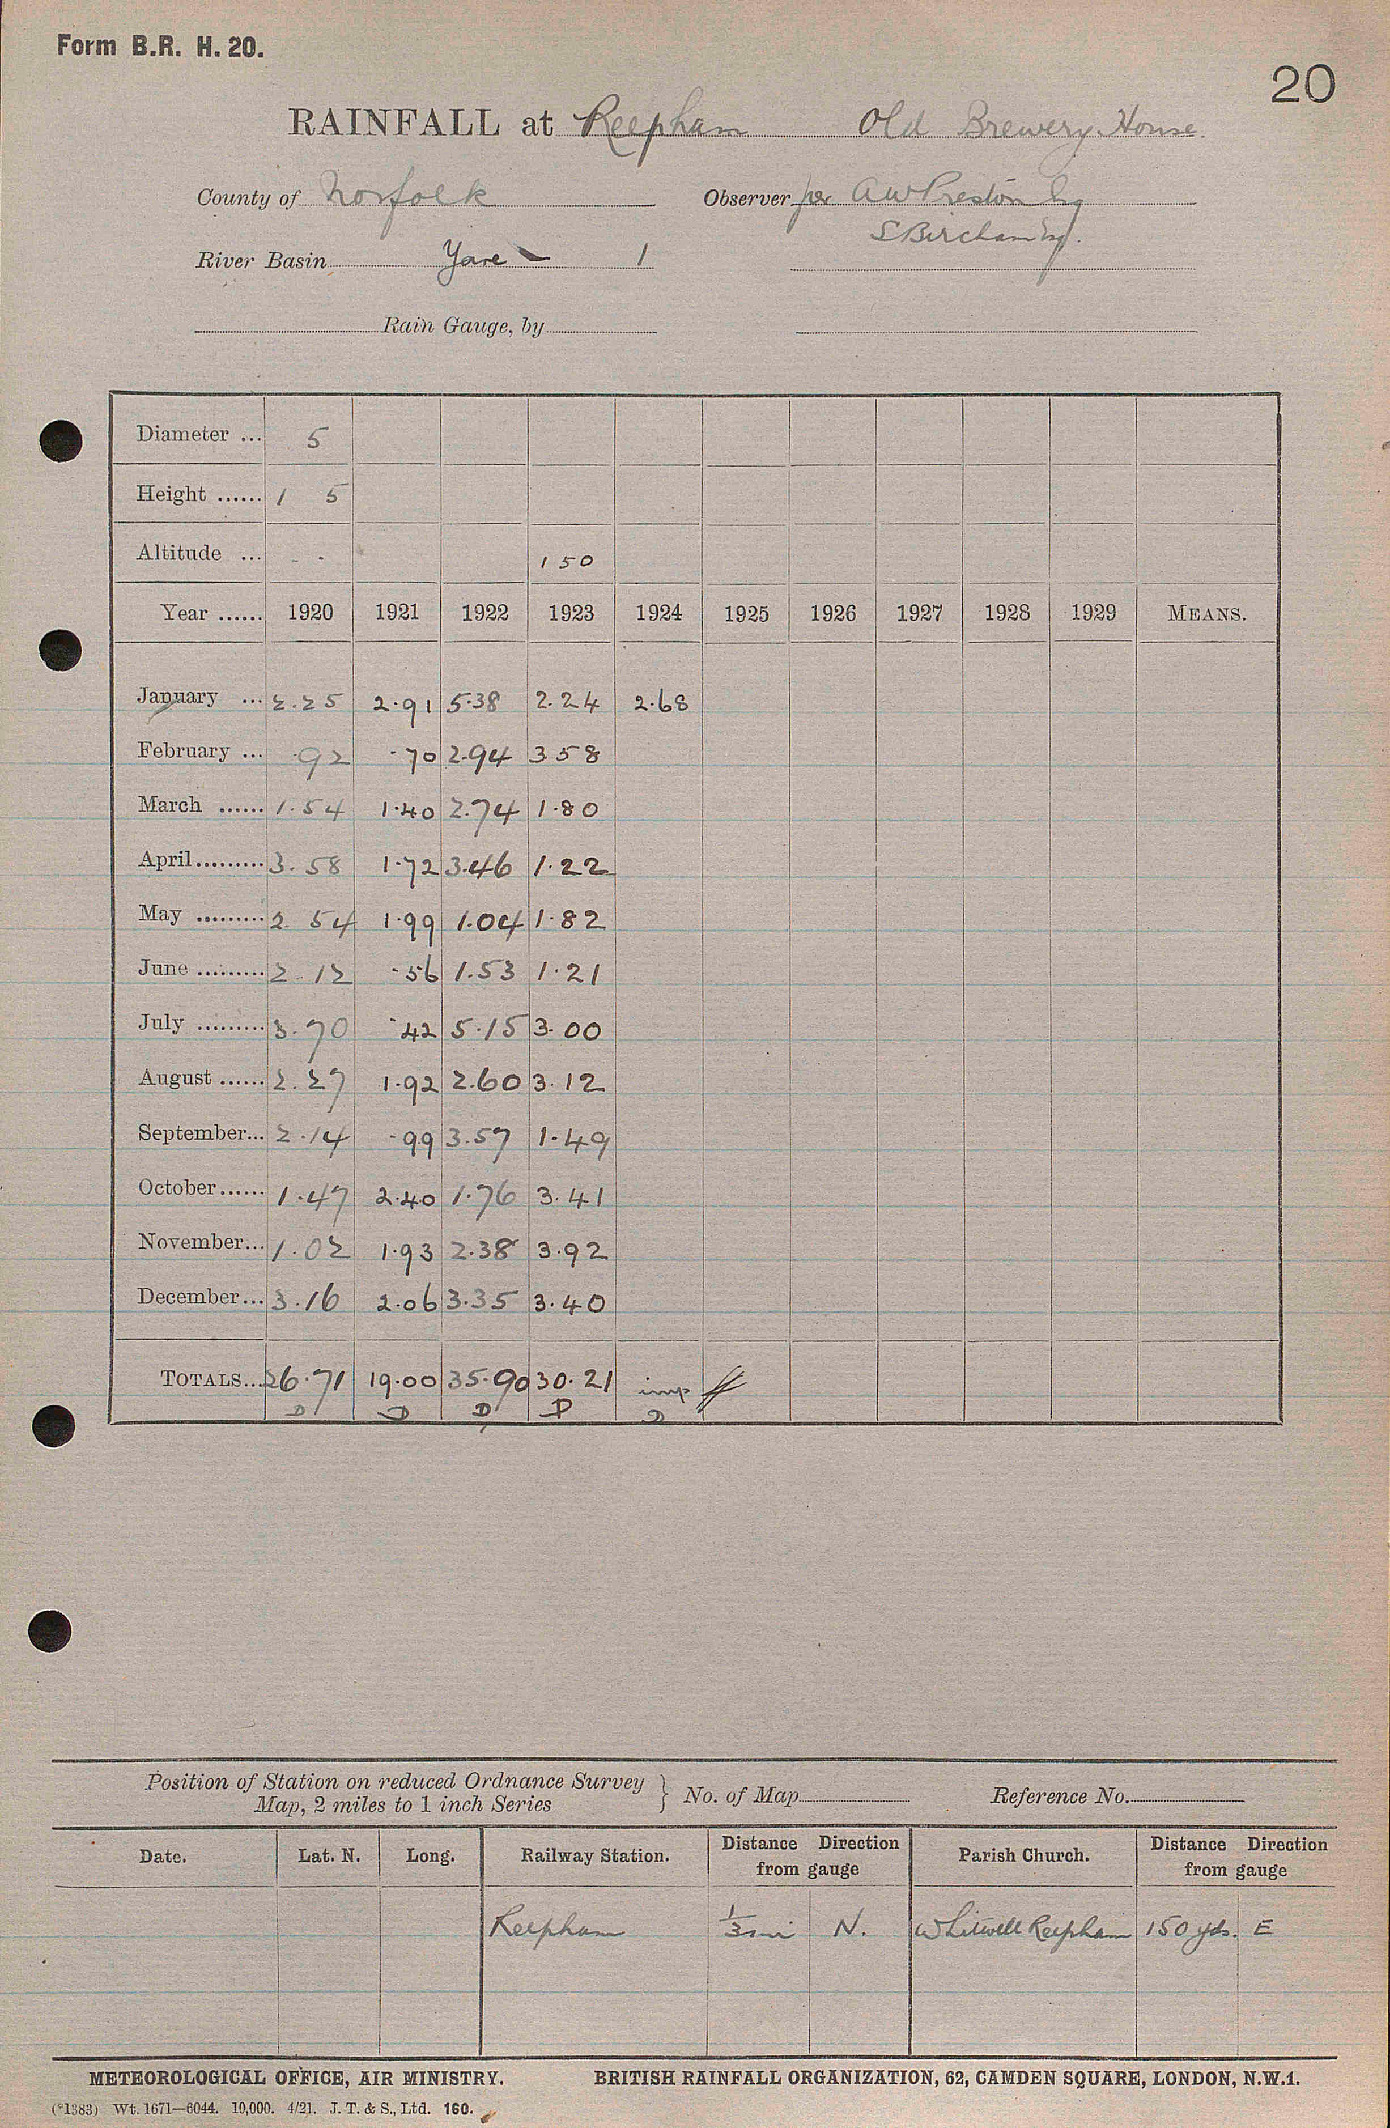 Form B.R. H. 20.
20
RAINFALL at Reepham Old Brewery House
County of Norfolk Observer per A W Preston Esq
S Bircham Esq.
River Basin Yare 1
Rain Gauge, by
Diameter ... 5
Height ...... 1 5
Altitude ... - - 150
Year ...... 1920 1921 1922 1923 1924 1925 1926 1927 1928 1929 MEANS.
January ... 2.25 2.91 5.38 2.24 2.68
February ... .92 .70 2.94 3 58
March ...... 1.54 1.40 2.74 1.80
April......... 3.58 1.72 3.46 1.22
May ......... 2.54 1.99 1.04 1.82
June ......... 2.12 .56 1.53 1.21
July ......... 3.70 .42 5.15 3.00
August ...... 2.27 1.92 2.60 3.12
September... 2.14 .99 3.57 1.49
October...... 1.47 2.40 1.76 3.41
November... 1.02 1.93 2.38 3.92
December... 3.16 2.06 3.35 3.40
TOTALS... 26.71 19.00 35.90 30.21 imp
D D D D D
Position of Station on reduced Ordnance Survey
Map, 2 miles to 1 inch Series } No. of Map Reference No.
Date. Lat. N. Long. Railway Station. Distance Direction from gauge Parish Church. Distance Direction from gauge
Reepham 1/3 mi N. Whitwell Reepham 150 yds. E
METEOROLOGICAL OFFICE, AIR MINISTRY. BRITISH RAINFALL ORGANIZATION, 62, CAMDEN SQUARE, LONDON, N.W.1.
(*1383) Wt. 1671—6044. 10,000. 4/21. J. T. & S., Ltd. 160.